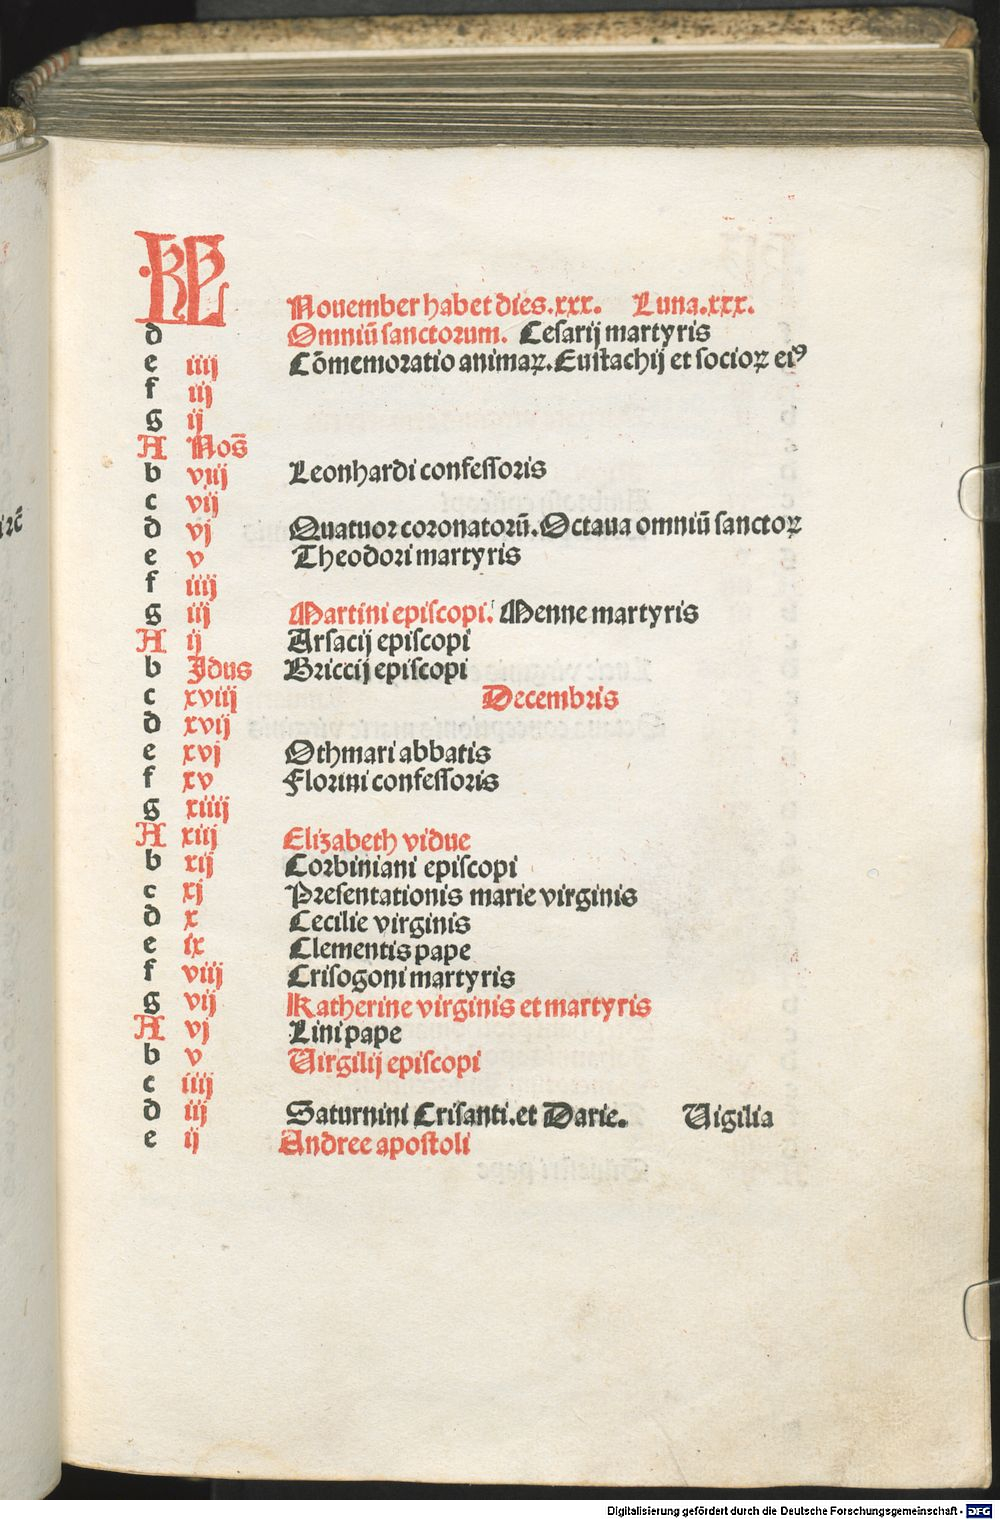 KL Nouember habet dies.xxx. Luna.xxx.
d Omniū sanctorum. Cesarij martyris
e iiij Cōmemoratio animaꝝ.Eustachij et socioꝝ eiꝰ
f iij
g ij
A Nos̄
b viij Leonhardi confessoris
c vij
d vj Quatuor coronatorū.Octaua omniū sanctoꝝ
e v Theodori martyris
f iiij
g iij Martini episcopi. Menne martyris
A ij Arsacij episcopi
b Jdus Briccij episcopi
c xviij Decembris
d xvij
e xvj Othmari abbatis
f xv Florini confessoris
g xiiij
A xiij Elizabeth vidue
b xij Corbiniani episcopi
c xj Presentationis marie virginis
d x Cecilie virginis
e ix Clementis pape
f viij Crisogoni martyris
g vij Katherine virginis et martyris
A vj Lini pape
b v Uirgilij episcopi
c iiij
d iij Saturnini Crisanti.et Darie. Uigilia
e ij Andree apostoli
Digitalisierung gefördert durch die Deutsche Forschungsgemeinschaft - DFG